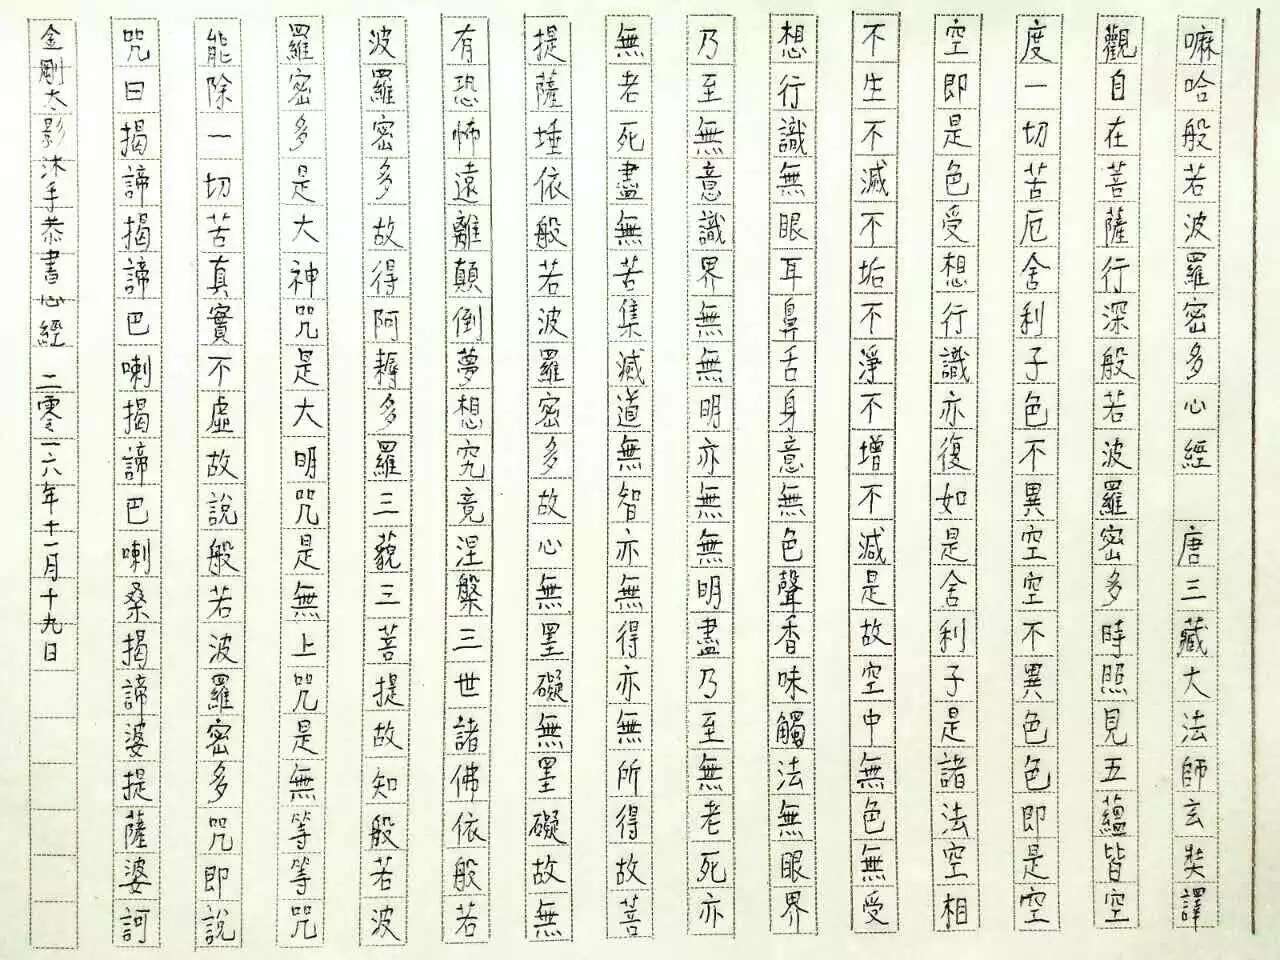 嘛哈般若波羅密多心經 唐三藏大法師玄奘譯
觀自在菩薩行深般若波羅密多時照見五蘊皆空
度一切苦厄舍利子色不異空空不異色色即是空
空即是色受想行識亦復如是舍利子是諸法空相
不生不滅不垢不淨不增不減是故空中無色無受
想行識無眼耳鼻舌身意無色聲香味觸法無眼界
乃至無意識界無無明亦無無明盡乃至無老死亦
無老死盡無苦集滅道無智亦無得亦無所得故菩
提薩埵依般若波羅密多故心無罣礙無罣礙故無
有恐怖遠離顛倒夢想究竟涅槃三世諸佛依般若
波羅密多故得阿耨多羅三藐三菩提故知般若波
羅密多是大神咒是大明咒是無上咒是無等等咒
能除一切苦真實不虛故說般若波羅密多咒即說
咒曰揭諦揭諦巴喇揭諦巴喇桑揭諦婆提薩婆訶
金剛大影沐手恭書心經 二零一六年十一月十九日